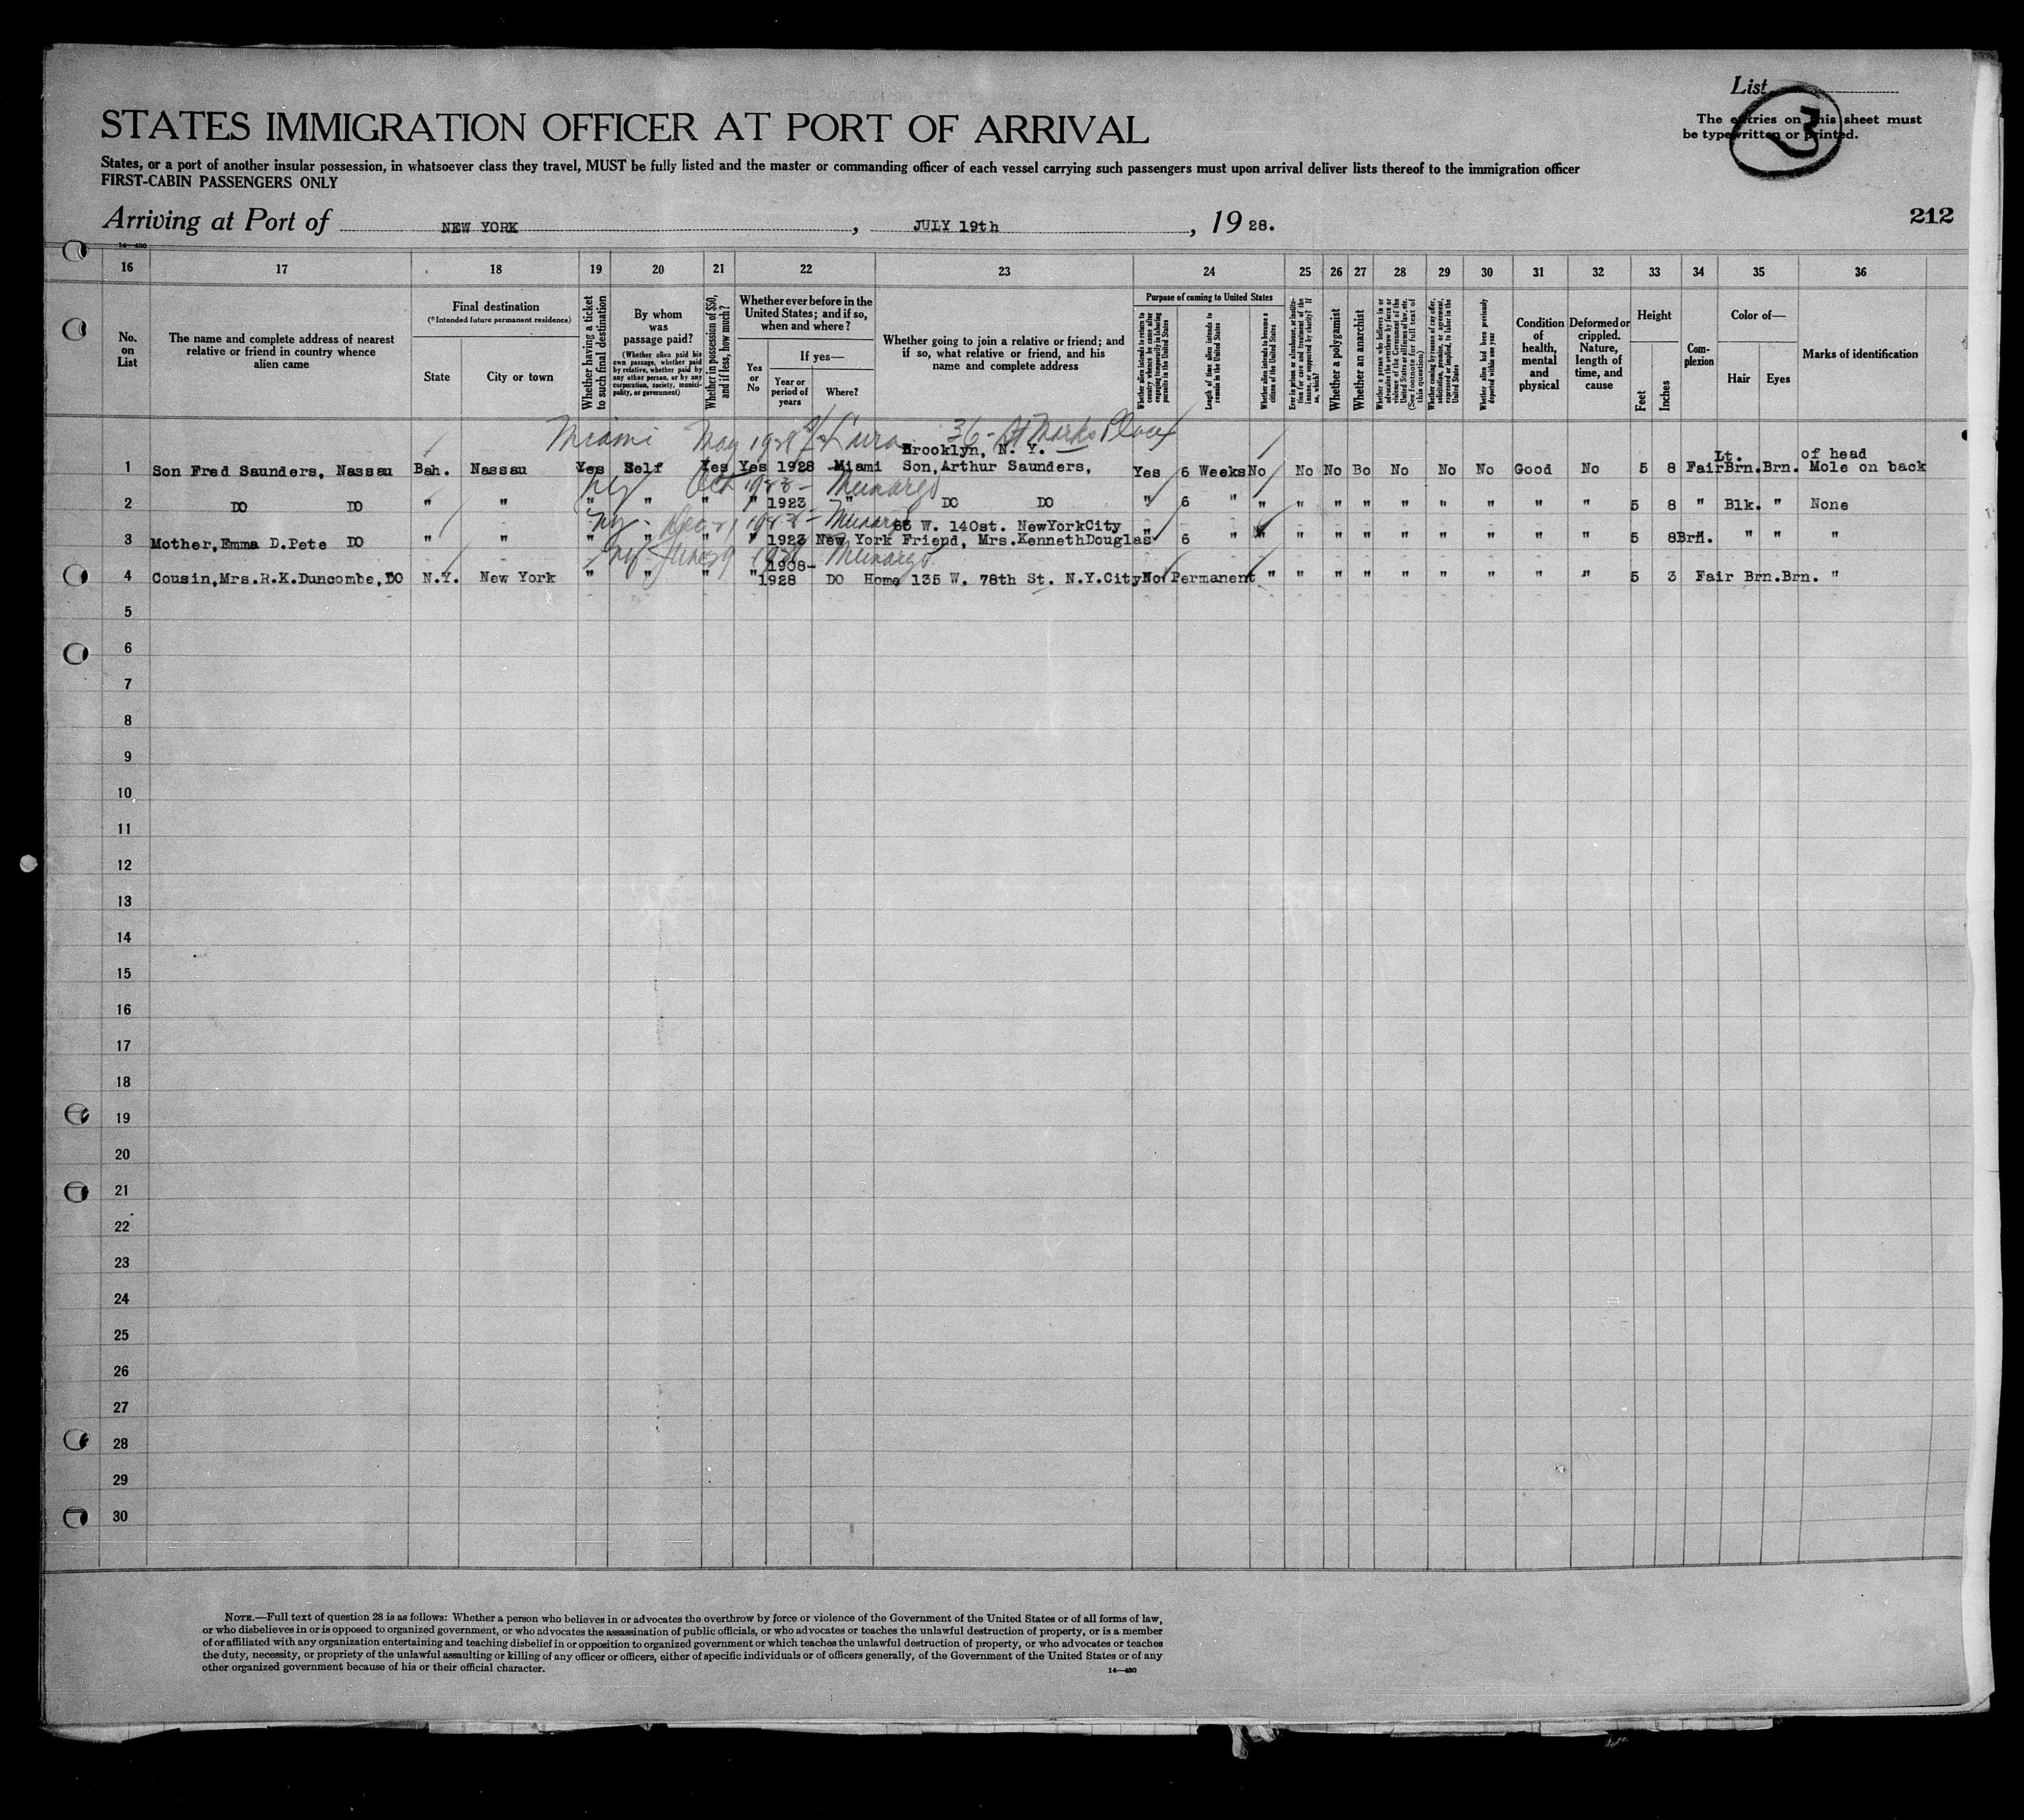 List
3
The entries on this sheet must
be typewritten or printed.
STATES IMMIGRATION OFFICER AT PORT OF ARRIVAL
States, or a port of another insular possession, in whatsoever class they travel, MUST be fully listed and the master or commanding officer of each vessel carrying such passengers must upon arrival deliver lists thereof to the immigration officer
FIRST-CABIN PASSENGERS ONLY
Arriving at Port of NEW YORK, JULY 19th, 19 28.
212
14-430
16 17 18 19 20 21 22 23 24 25 26 27 28 29 30 31 32 33 34 35 36
No. on List
The name and complete address of nearest relative or friend in country whence alien came
Final destination
(*Intended future permanent residence)
State
City or town
Whether having a ticket to such final destination
By whom was passage paid?
(Whether alien paid his own passage, whether paid by relative, whether paid by any other person, or by any corporation, society, municipality, or government)
Whether in possession of $50, and if less, how much?
Whether ever before in the United States; and if so, when and where?
Yes or No
If yes—
Year or period of years
Where?
Whether going to join a relative or friend; and if so, what relative or friend, and his name and complete address
Purpose of coming to United States
Whether alien intends to return to country whence he came after engaging temporarily in laboring pursuits in the United States
Length of time alien intends to remain in the United States
Whether alien intends to become a citizen of the United States
Ever in prison or almshouse, or institution for care and treatment of the insane, or supported by charity? If so, which?
Whether a polygamist
Whether an anarchist
Whether a person who believes in or advocates the overthrow by force or violence of the Government of the United States or all forms of law, etc. (See footnote for full text of this question)
Whether coming by reason of any offer, solicitation, promise, or agreement, expressed or implied, to labor in the United States
Whether alien had been previously deported within one year
Condition of health, mental and physical
Deformed or crippled. Nature, length of time, and cause
Height
Feet
Inches
Complexion
Color of—
Hair
Eyes
Marks of identification
Miami May 1928 36 - St Marks Place
Brooklyn, N. Y. Lt. of head
1 Son Fred Saunders, Nassau Bah. Nassau Yes Self Yes Yes 1928 Miami Son, Arthur Saunders, Yes 6 Weeks No No No Bo No No No Good No 5 8 Fair Brn. Brn. Mole on back
NY Oct 1923 - Munargo
2 DO DO " " " " " " 1923 " DO DO " 6 " " " " " " " " " " 5 8 " Blk. " None
NY - Dec 21 1923 - Munargo 65 W. 140st. NewYorkCity
3 Mother, Emma D.Pete DO " " " " " " 1923 New York Friend, Mrs.KennethDouglas " 6 " " " " " " " " " " 5 8 Brn. " " "
NY June 9 1928 Munargo
1908-
4 Cousin, Mrs.R.K.Duncombe, DO N.Y. New York " " " " 1928 DO Home 135 W. 78th St. N.Y.City No Permanent " " " " " " " " " 5 3 Fair Brn. Brn. "
5
6
7
8
9
10
11
12
13
14
15
16
17
18
19
20
21
22
23
24
25
26
27
28
29
30
NOTE.—Full text of question 28 is as follows: Whether a person who believes in or advocates the overthrow by force or violence of the Government of the United States or of all forms of law,
or who disbelieves in or is opposed to organized government, or who advocates the assassination of public officials, or who advocates or teaches the unlawful destruction of property, or is a member
of or affiliated with any organization entertaining and teaching disbelief in or opposition to organized government or which teaches the unlawful destruction of property, or who advocates or teaches
the duty, necessity, or propriety of the unlawful assaulting or killing of any officer or officers, either of specific individuals or of officers generally, of the Government of the United States or of any
other organized government because of his or their official character.
14-430